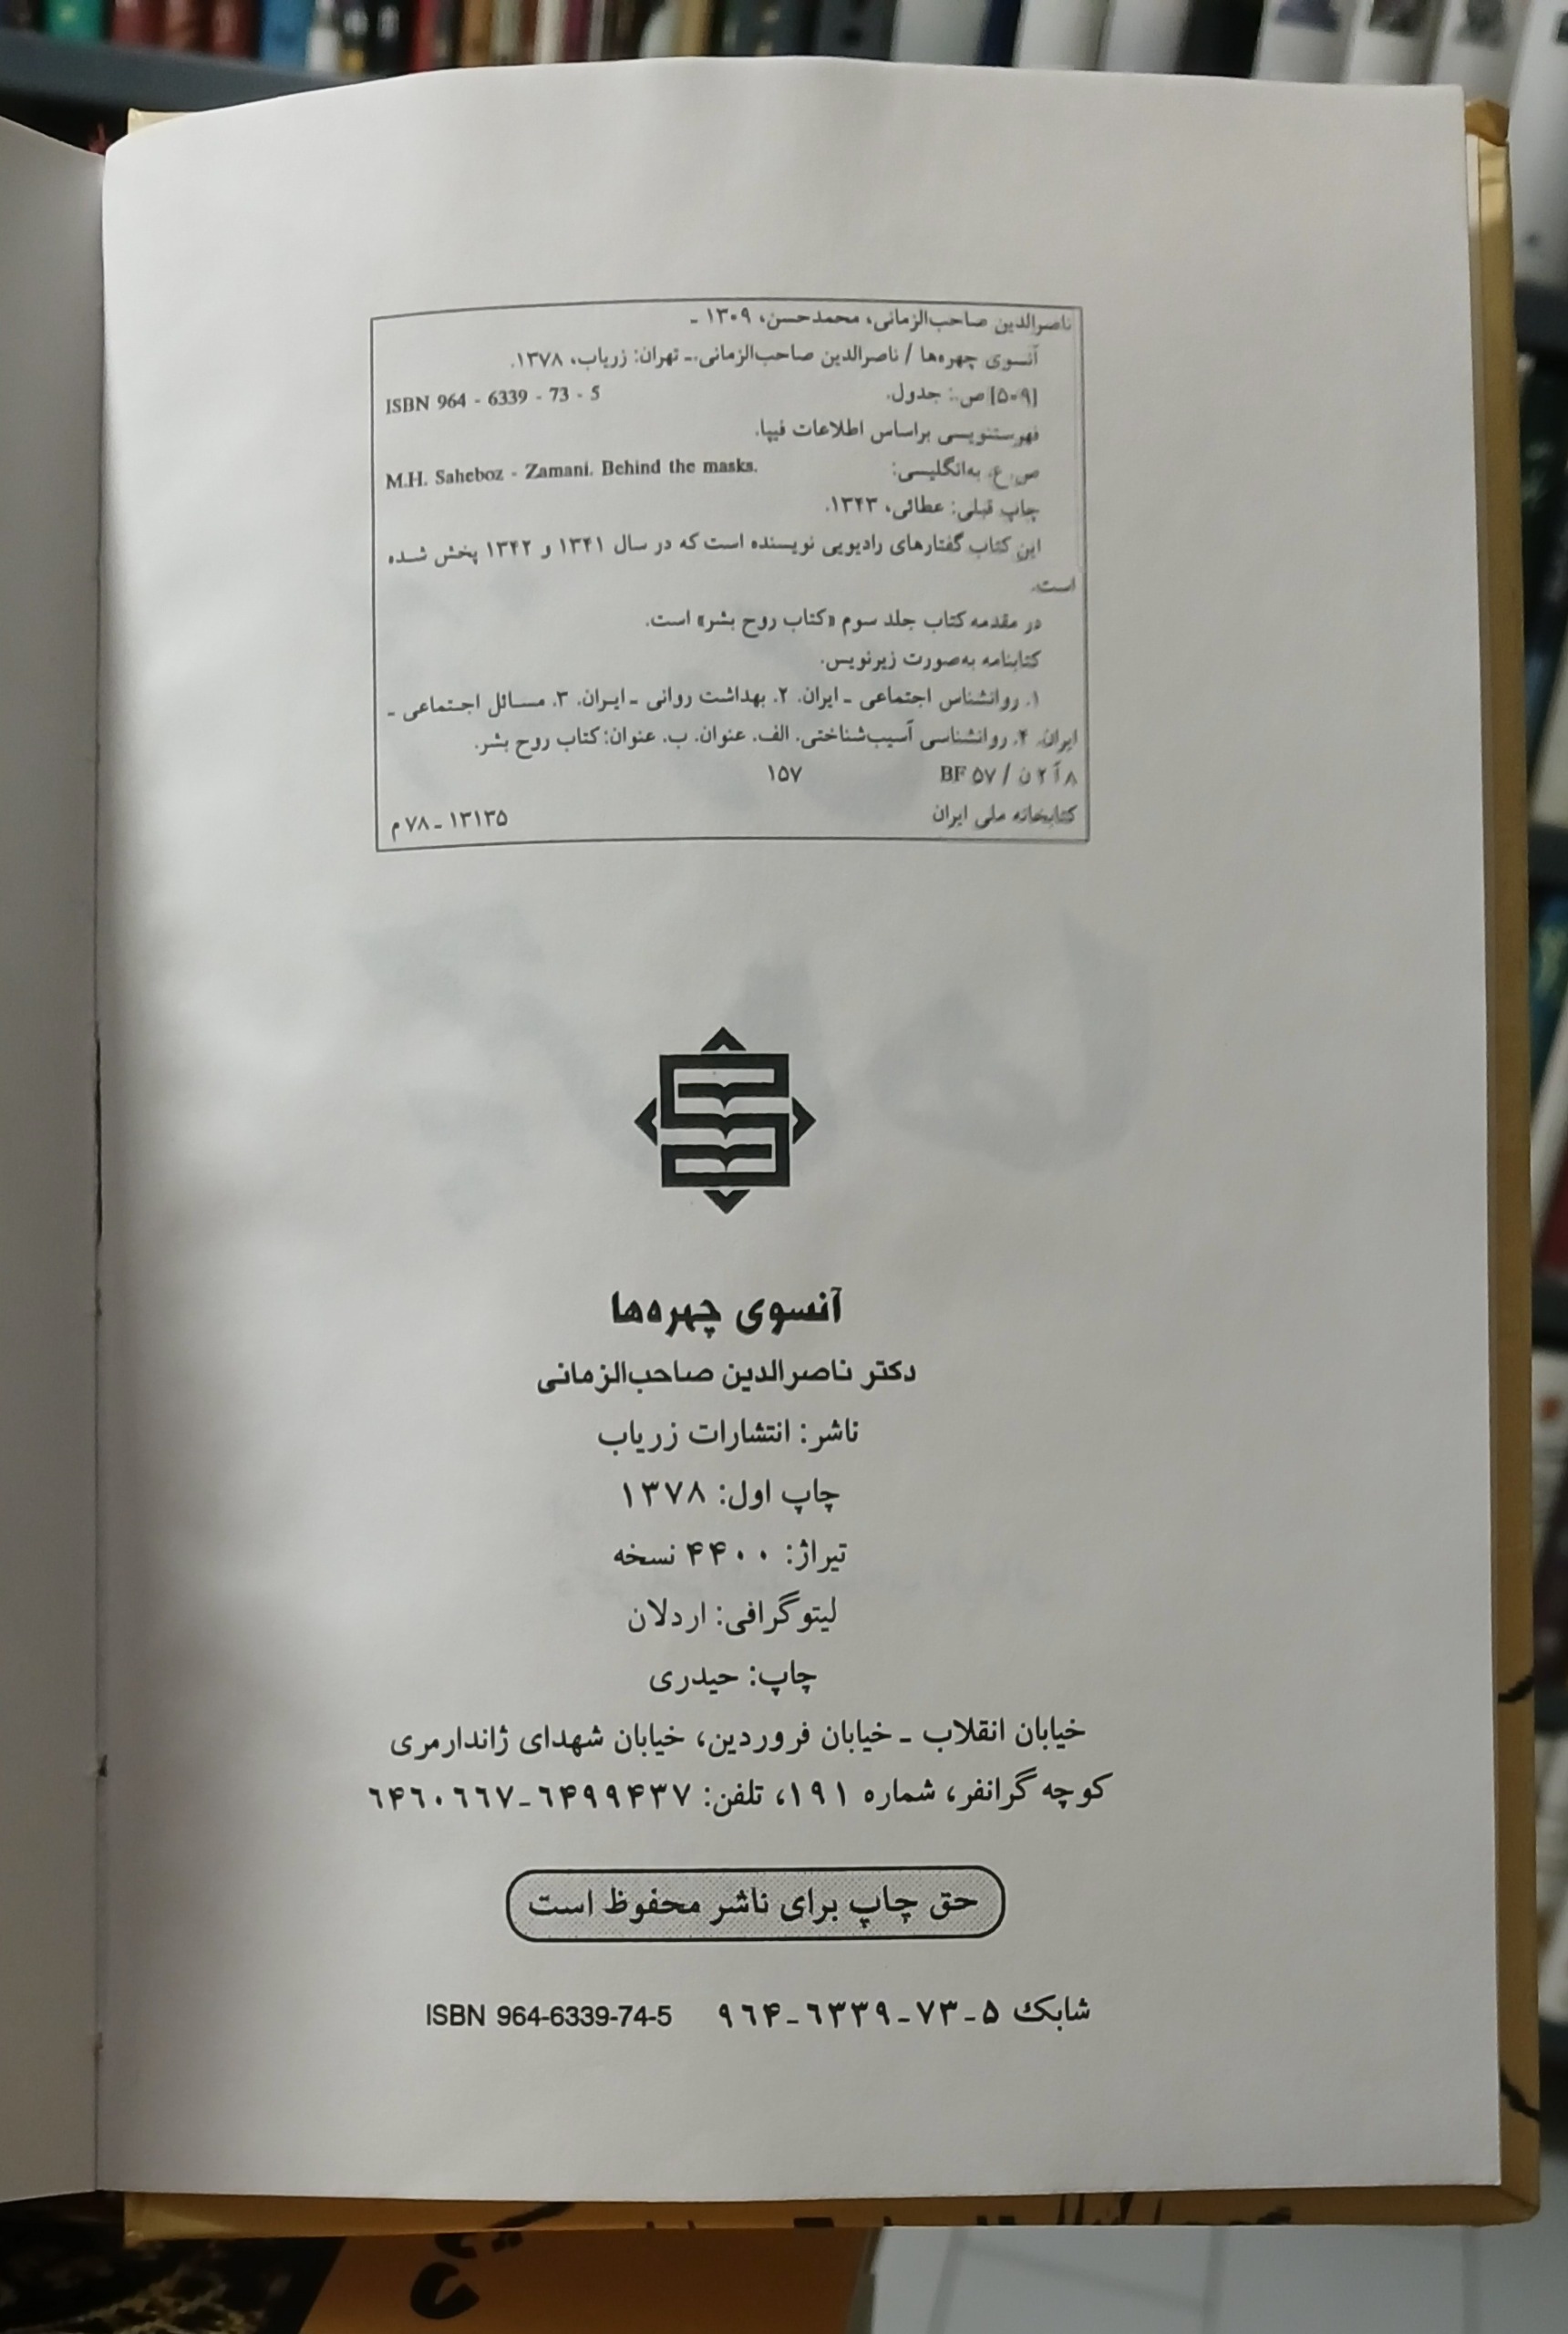 ناصرالدین صاحب‌الزمانی، محمدحسن، ۱۳۰۹ ـ
آنسوی چهره‌ها / ناصرالدین صاحب‌الزمانی.ـ تهران: زریاب، ۱۳۷۸.
[۵۰۹] ص.: جدول. ISBN 964 - 6339 - 73 - 5
فهرستنویسی براساس اطلاعات فیپا.
ص.ع. به‌انگلیسی: M.H. Saheboz - Zamani. Behind the masks.
چاپ قبلی: عطائی، ۱۳۴۳.
این کتاب گفتارهای رادیویی نویسنده است که در سال ۱۳۴۱ و ۱۳۴۲ پخش شده
است.
در مقدمه کتاب جلد سوم «کتاب روح بشر» است.
کتابنامه به‌صورت زیرنویس.
۱. روانشناس اجتماعی ـ ایران. ۲. بهداشت روانی ـ ایران. ۳. مسائل اجتماعی ـ
ایران. ۴. روانشناسی آسیب‌شناختی. الف. عنوان. ب. عنوان: کتاب روح بشر.
۸ آ ۲ ن / ۵۷ BF ۱۵۷
کتابخانه ملی ایران ۱۳۱۳۵ ـ ۷۸ م
آنسوی چهره‌ها
دکتر ناصرالدین صاحب‌الزمانی
ناشر: انتشارات زریاب
چاپ اول: ۱۳۷۸
تیراژ: ۴۴۰۰ نسخه
لیتوگرافی: اردلان
چاپ: حیدری
خیابان انقلاب ـ خیابان فروردین، خیابان شهدای ژاندارمری
کوچه گرانفر، شماره ۱۹۱، تلفن: ۶۴۹۹۴۳۷-۶۴۶۰۶۶۷
حق چاپ برای ناشر محفوظ است
شابک ۵-۷۳-۶۳۳۹-۹۶۴ ISBN 964-6339-74-5